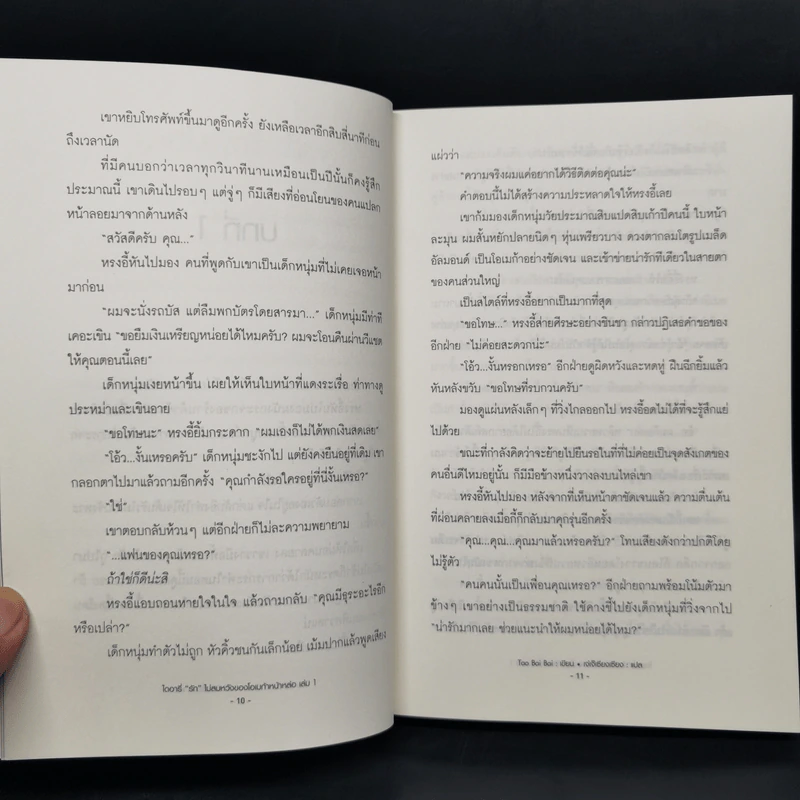 เขาหยิบโทรศัพท์ขึ้นมาดูอีกครั้ง ยังเหลือเวลาอีกสิบสี่นาทีก่อน
ถึงเวลานัด
ที่มีคนบอกว่าเวลาทุกวินาทีนานเหมือนเป็นปีนั้นก็คงรู้สึก
ประมาณนี้ เขาเดินไปรอบๆ แต่จู่ๆ ก็มีเสียงที่อ่อนโยนของคนแปลก
หน้าลอยมาจากด้านหลัง
"สวัสดีครับ คุณ..."
หรงอี้หันไปมอง คนที่พูดกับเขาเป็นเด็กหนุ่มที่ไม่เคยเจอหน้า
มาก่อน
"ผมจะนั่งรถบัส แต่ลืมพกบัตรโดยสารมา..." เด็กหนุ่มมีท่าที
เคอะเขิน "ขอยืมเงินเหรียญหน่อยได้ไหมครับ? ผมจะโอนคืนผ่านวีแชต
ให้คุณตอนนี้เลย"
เด็กหนุ่มเงยหน้าขึ้น เผยให้เห็นใบหน้าที่แดงระเรื่อ ท่าทางดู
ประหม่าและเขินอาย
"ขอโทษนะ" หรงอี้ยิ้มกระดาก "ผมเองก็ไม่ได้พกเงินสดเลย"
"โอ้ว...งั้นเหรอครับ" เด็กหนุ่มชะงักไป แต่ยังคงยืนอยู่ที่เดิม เขา
กลอกตาไปมาแล้วถามอีกครั้ง "คุณกำลังรอใครอยู่ที่นี่งั้นเหรอ?"
"ใช่"
เขาตอบกลับห้วนๆ แต่อีกฝ่ายก็ไม่ละความพยายาม
"...แฟนของคุณเหรอ?"
ถ้าใช่ก็ดีน่ะสิ
หรงอี้แอบถอนหายใจในใจ แล้วถามกลับ "คุณมีธุระอะไรอีก
หรือเปล่า?"
เด็กหนุ่มทำตัวไม่ถูก หัวคิ้วชนกันเล็กน้อย เม้มปากแล้วพูดเสียง
โออารี่ "รัก" ไม่สมหวังของโอเมก้าหน้าหล่อ เล่ม 1
- 10 -
แผ่วว่า
"ความจริงผมแค่อยากได้วิธีติดต่อคุณน่ะ"
คำตอบนี้ไม่ได้สร้างความประหลาดใจให้หรงอี้เลย
เขาก้มมองเด็กหนุ่มวัยประมาณสิบแปดสิบเก้าปีคนนี้ ใบหน้า
ละมุน ผมสั้นหยักปลายนิดๆ หุ่นเพรียวบาง ดวงตากลมโตรูปเมล็ด
อัลมอนด์ เป็นโอเมก้าอย่างชัดเจน และเข้าข่ายน่ารักทีเดียวในสายตา
ของคนส่วนใหญ่
เป็นสไตล์ที่หรงอี้อยากเป็นมากที่สุด
"ขอโทษ..." หรงอี้ส่ายศีรษะอย่างชินชา กล่าวปฏิเสธคำขอของ
อีกฝ่าย "ไม่ค่อยสะดวกน่ะ"
"โอ้ว...งั้นหรอกเหรอ" อีกฝ่ายดูผิดหวังและหดหู่ ฝืนฉีกยิ้มแล้ว
หันหลังขวับ "ขอโทษที่รบกวนครับ"
มองดูแผ่นหลังเล็กๆ ที่วิ่งไกลออกไป หรงอี้อดไม่ได้ที่จะรู้สึกแย่
ไปด้วย
ขณะที่กำลังคิดว่าจะย้ายไปยืนรอในที่ที่ไม่ค่อยเป็นจุดสังเกตของ
คนอื่นดีไหมอยู่นั้น ก็มีมือข้างหนึ่งวางลงบนไหล่เขา
หรงอี้หันไปมอง หลังจากที่เห็นหน้าตาชัดเจนแล้ว ความตื่นเต้น
ที่ผ่อนคลายลงเมื่อกี้ก็กลับมาคุกรุ่นอีกครั้ง
"คุณ...คุณ...คุณมาแล้วเหรอครับ?" โทนเสียงดังกว่าปกติโดย
ไม่รู้ตัว
"คนคนนั้นเป็นเพื่อนคุณเหรอ?" อีกฝ่ายถามพร้อมโน้มตัวมา
ข้างๆ เขาอย่างเป็นธรรมชาติ ใช้คางชี้ไปยังเด็กหนุ่มที่วิ่งจากไป
"น่ารักมากเลย ช่วยแนะนำให้ผมหน่อยได้ไหม?"
Tao Bai Bai : เขียน • เจ่เจ๊เซียงเซียง : แปล
- 11 -